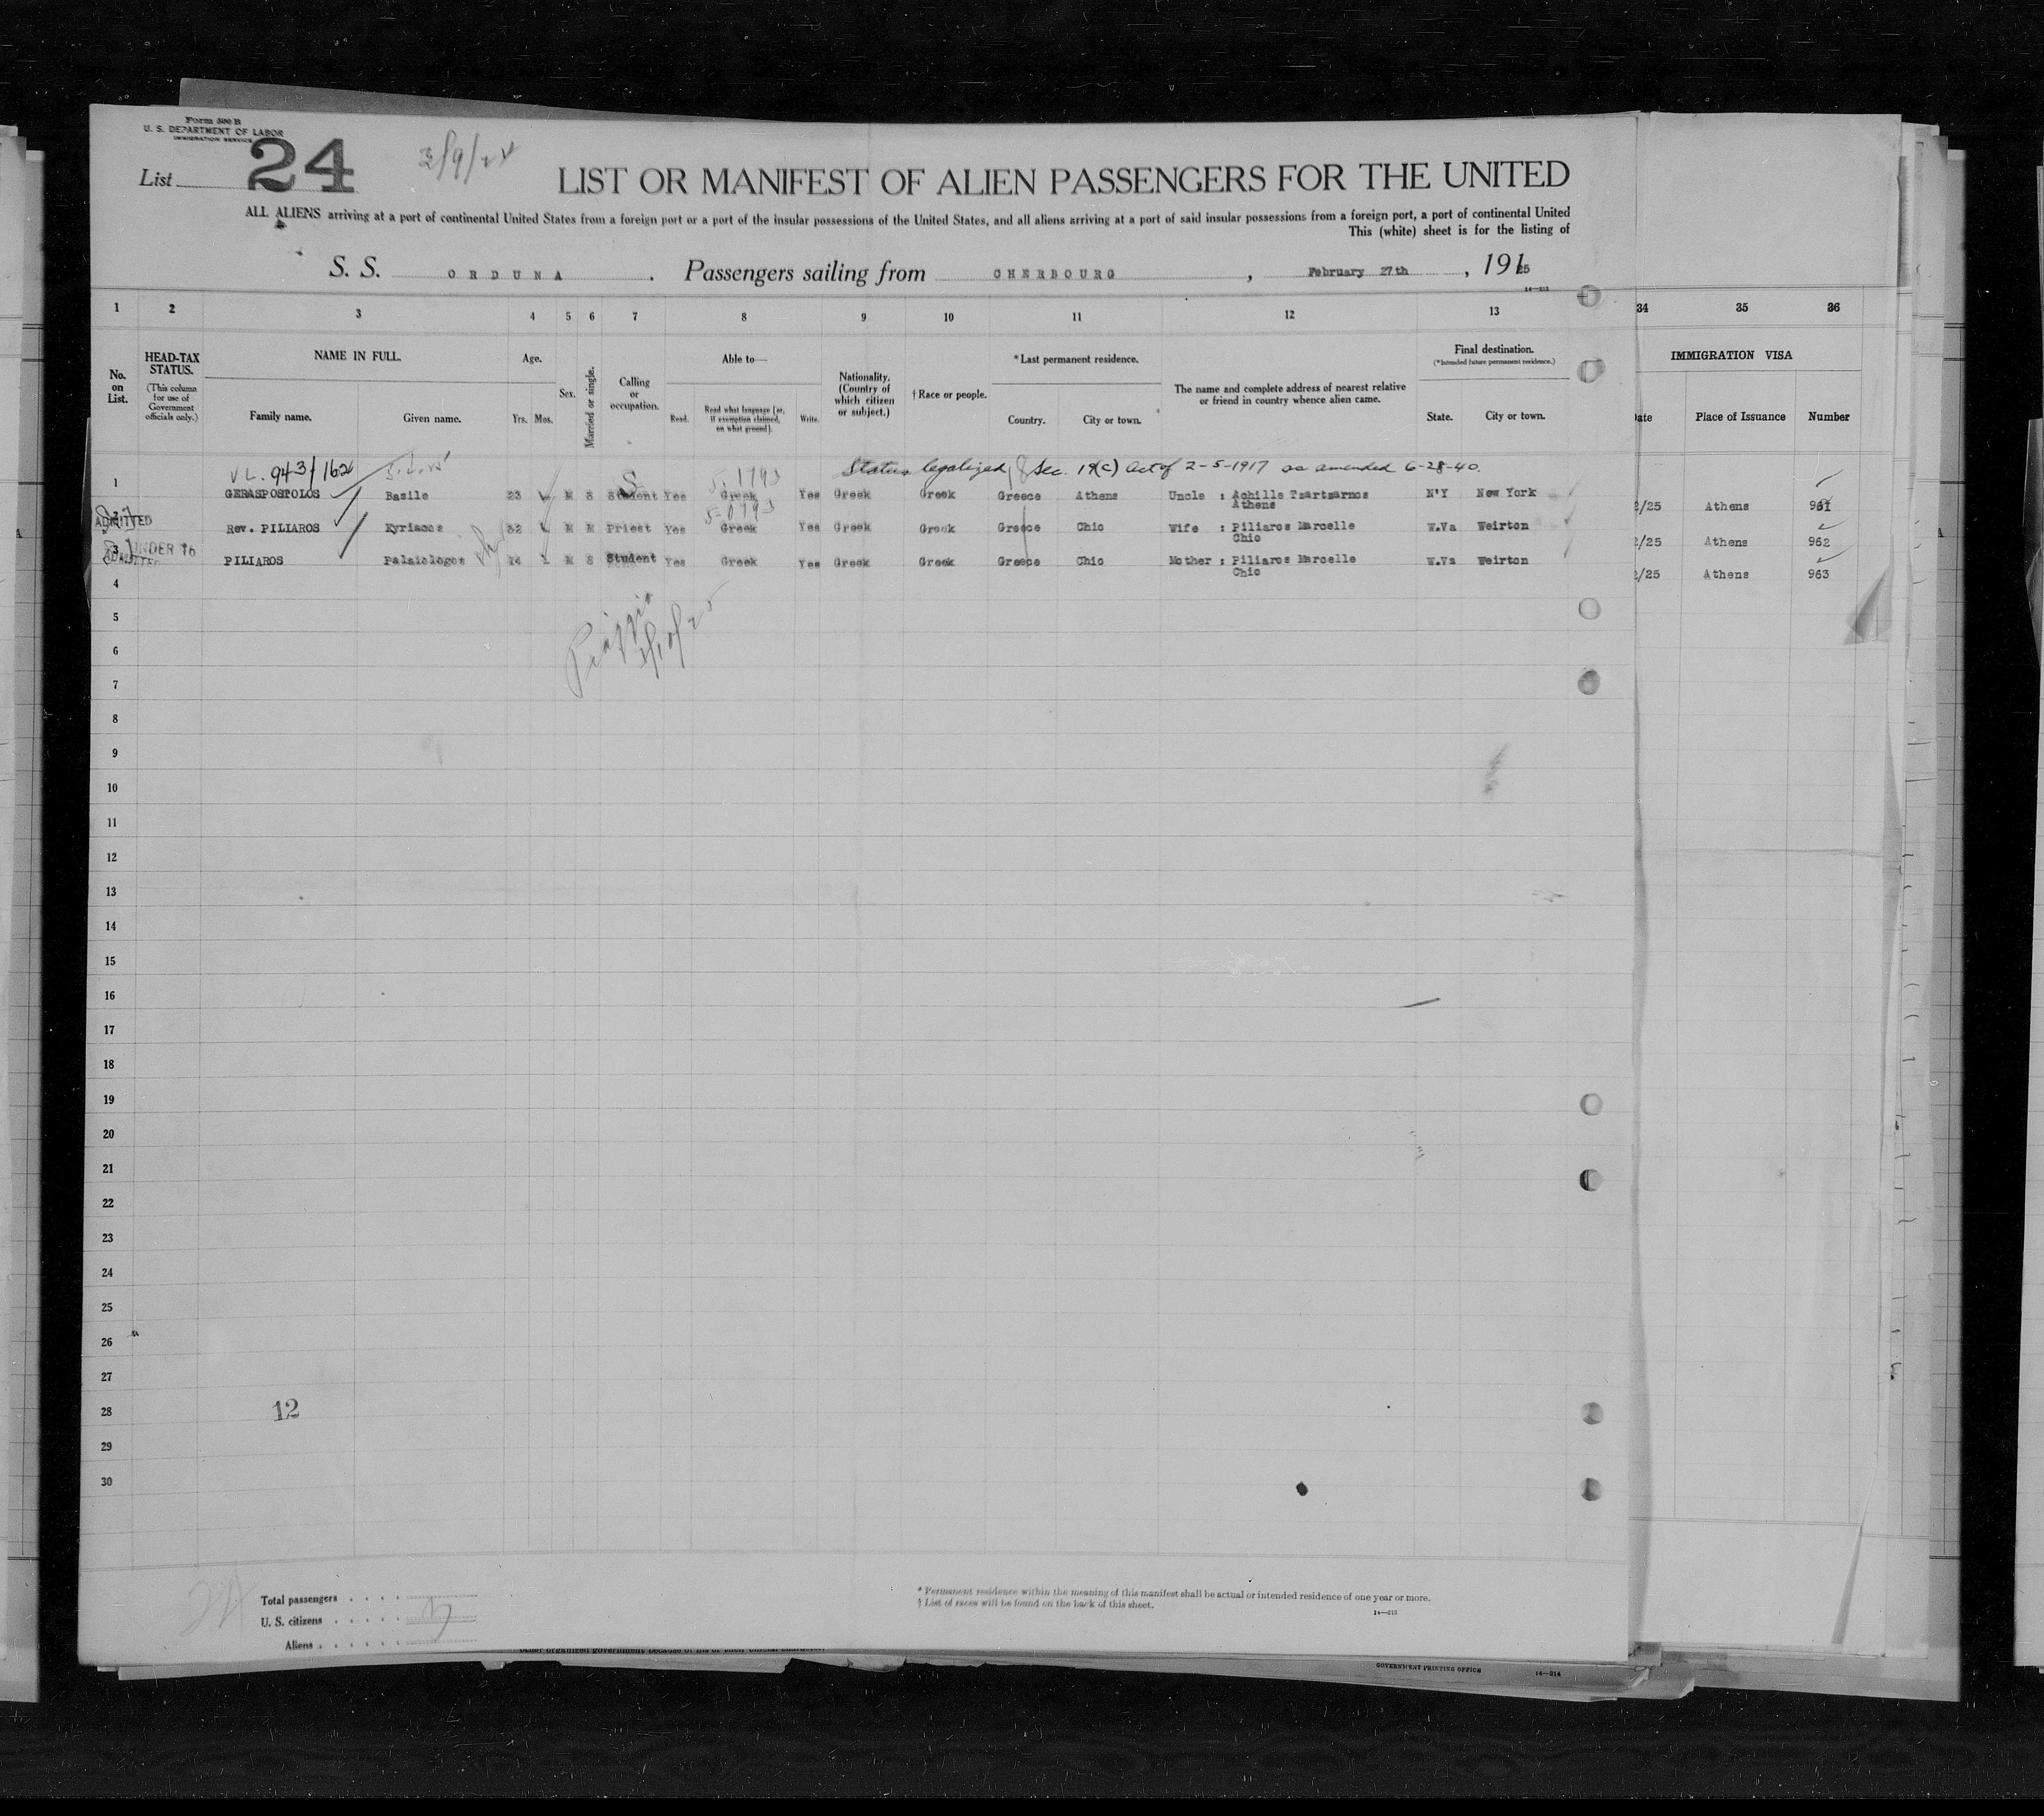 Form 500 B
U. S. DEPARTMENT OF LABOR
IMMIGRATION SERVICE
List 24
LIST OR MANIFEST OF ALIEN PASSENGERS FOR THE UNITED
ALL ALIENS arriving at a port of continental United States from a foreign port or a port of the insular possessions of the United States, and all aliens arriving at a port of said insular possessions from a foreign port, a port of continental United
This (white) sheet is for the listing of
S. S. ORDUNA . Passengers sailing from CHERBOURG , February 27th , 1925
1 2 3 4 5 6 7 8 9 10 11 12 13 34 35 36
No. on List.
HEAD-TAX STATUS.
(This column for use of Government officials only.)
NAME IN FULL.
Family name. Given name.
Age.
Yrs. Mos.
Sex.
Married or single.
Calling or occupation.
Able to—
Read. Read what language (or, if exemption claimed, on what ground). Write.
Nationality. (Country of which citizen or subject.)
† Race or people.
* Last permanent residence.
Country. City or town.
The name and complete address of nearest relative or friend in country whence alien came.
Final destination.
(*Intended future permanent residence.)
State. City or town.
IMMIGRATION VISA
Date Place of Issuance Number
VL. 943/162 Status legalized, Sec. 19(c) Act of 2-5-1917 as amended 6-28-40.
1 GERASPOSTOLOS Basile 23 M S Student Yes Greek Yes Greek Greek Greece Athens Uncle : Achille Tsartsarnos N'Y New York
Athens
2/25 Athens 961
2 ADMITTED Rev. PILIAROS Kyriacos 32 M M Priest Yes Greek Yes Greek Greek Greece Chio Wife : Piliaros Marcelle W.Va Weirton
Chio
2/25 Athens 962
3 UNDER 16 ADMITTED PILIAROS Palaiologos 14 M S Student Yes Greek Yes Greek Greek Greece Chio Mother : Piliaros Marcelle W.Va Weirton
Chio
2/25 Athens 963
4
5
6
7
8
9
10
11
12
13
14
15
16
17
18
19
20
21
22
23
24
25
26
27
28 12
29
30
Total passengers
U. S. citizens
Aliens
* Permanent residence within the meaning of this manifest shall be actual or intended residence of one year or more.
† List of races will be found on the back of this sheet.
14—213
GOVERNMENT PRINTING OFFICE 14—214